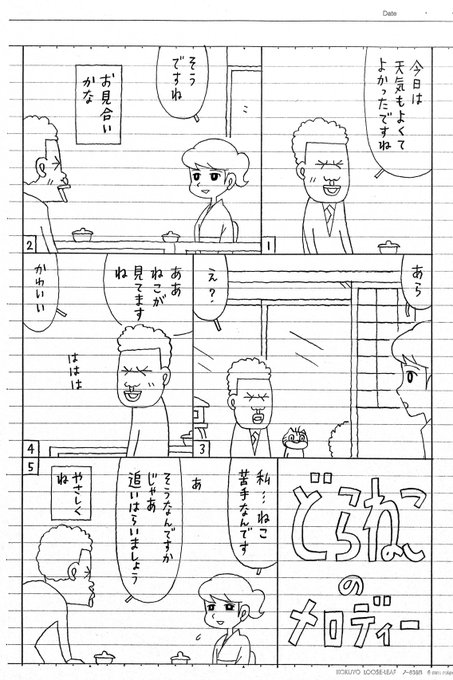 Date
今日は
天気もよくて
よかったですね
1
そう
ですね
お見合い
かな
2
あら
え？
3
ああ
ねこが
見てます
ね
かわいい
ははは
4
どらねこ
の
メロディー
私…ねこ
苦手なんです
あ
そうなんですか
じゃあ
追いはらいましょう
やさしく
ね
5
KOKUYO LOOSE-LEAF